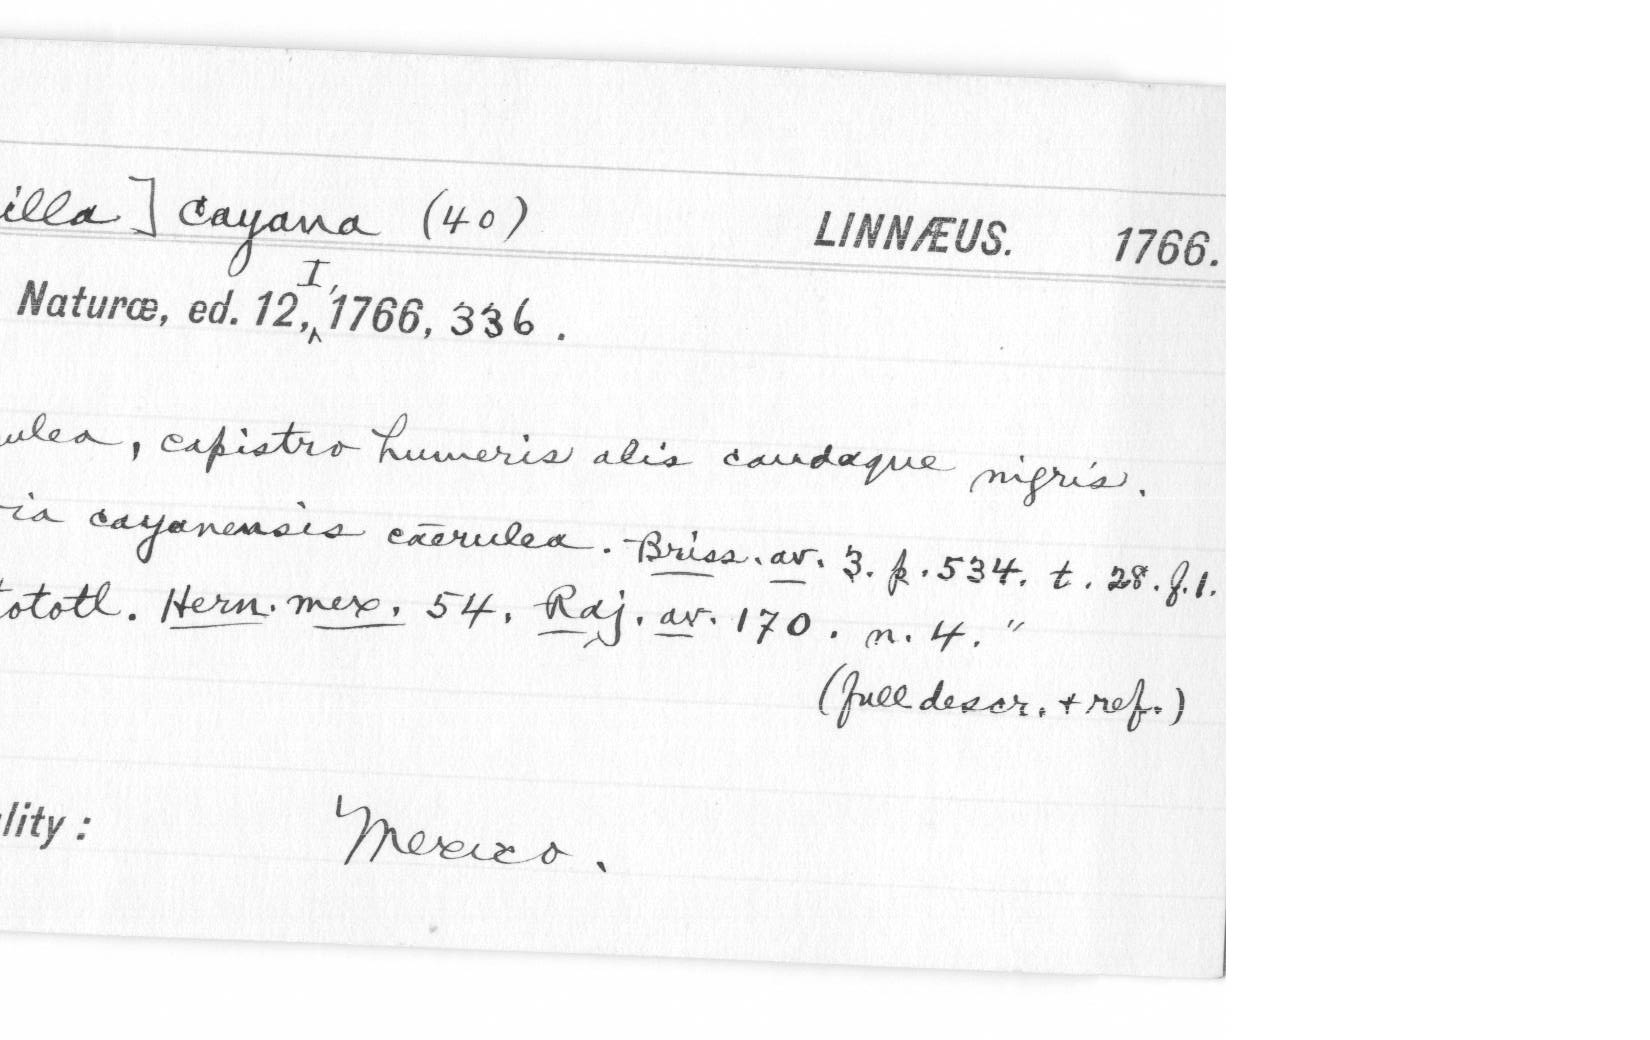 illa] cayana (40) LINNÆUS. 1766.
Naturæ, ed. 12, I, 1766, 336.
ulea, capistro humeris alis caudaque nigris.
ia cayanensis cærulea. Briss. av. 3. p. 534. t. 28. f. 1.
tototl. Hern. mex. 54. Raj. av. 170. n. 4."
(full descr. + ref.)
lity: Mexico.